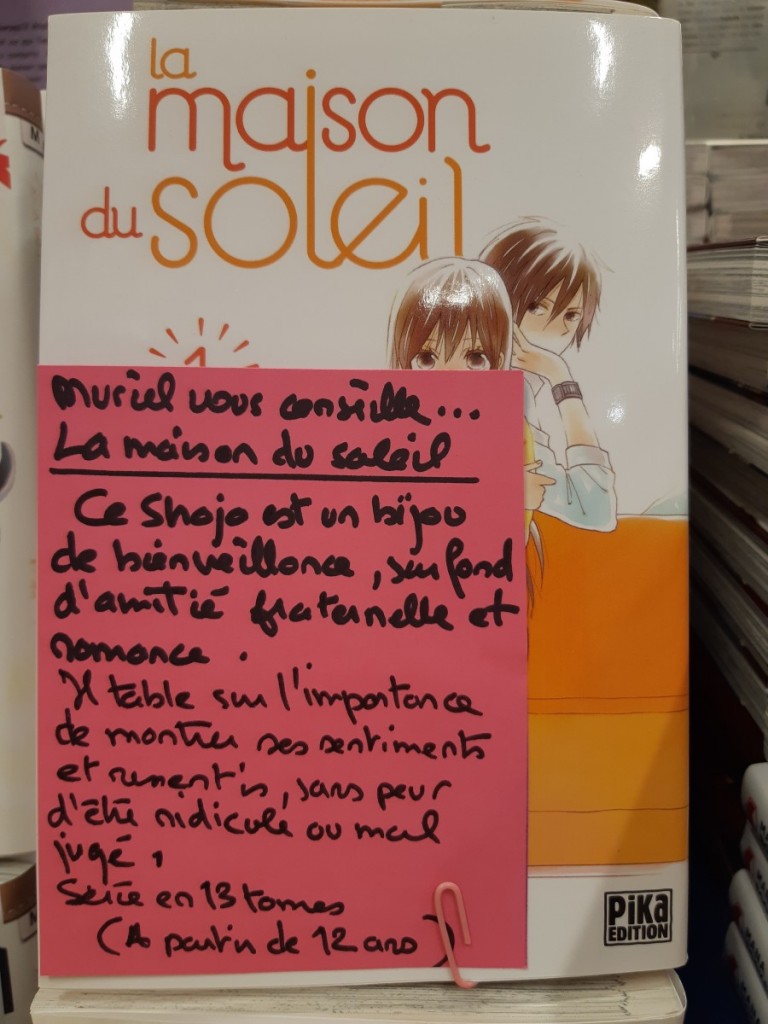 la
maison
du soleil
1
Muriel vous conseille...
La maison du soleil
Ce Shojo est un bijou
de bienveillance, sur fond
d'amitié fraternelle et
romance.
Il table sur l'importance
de montrer ses sentiments
et ressentis, sans peur
d'être ridicule ou mal
jugé.
Série en 13 tomes
(A partir de 12 ans)
PiKa
EDITION